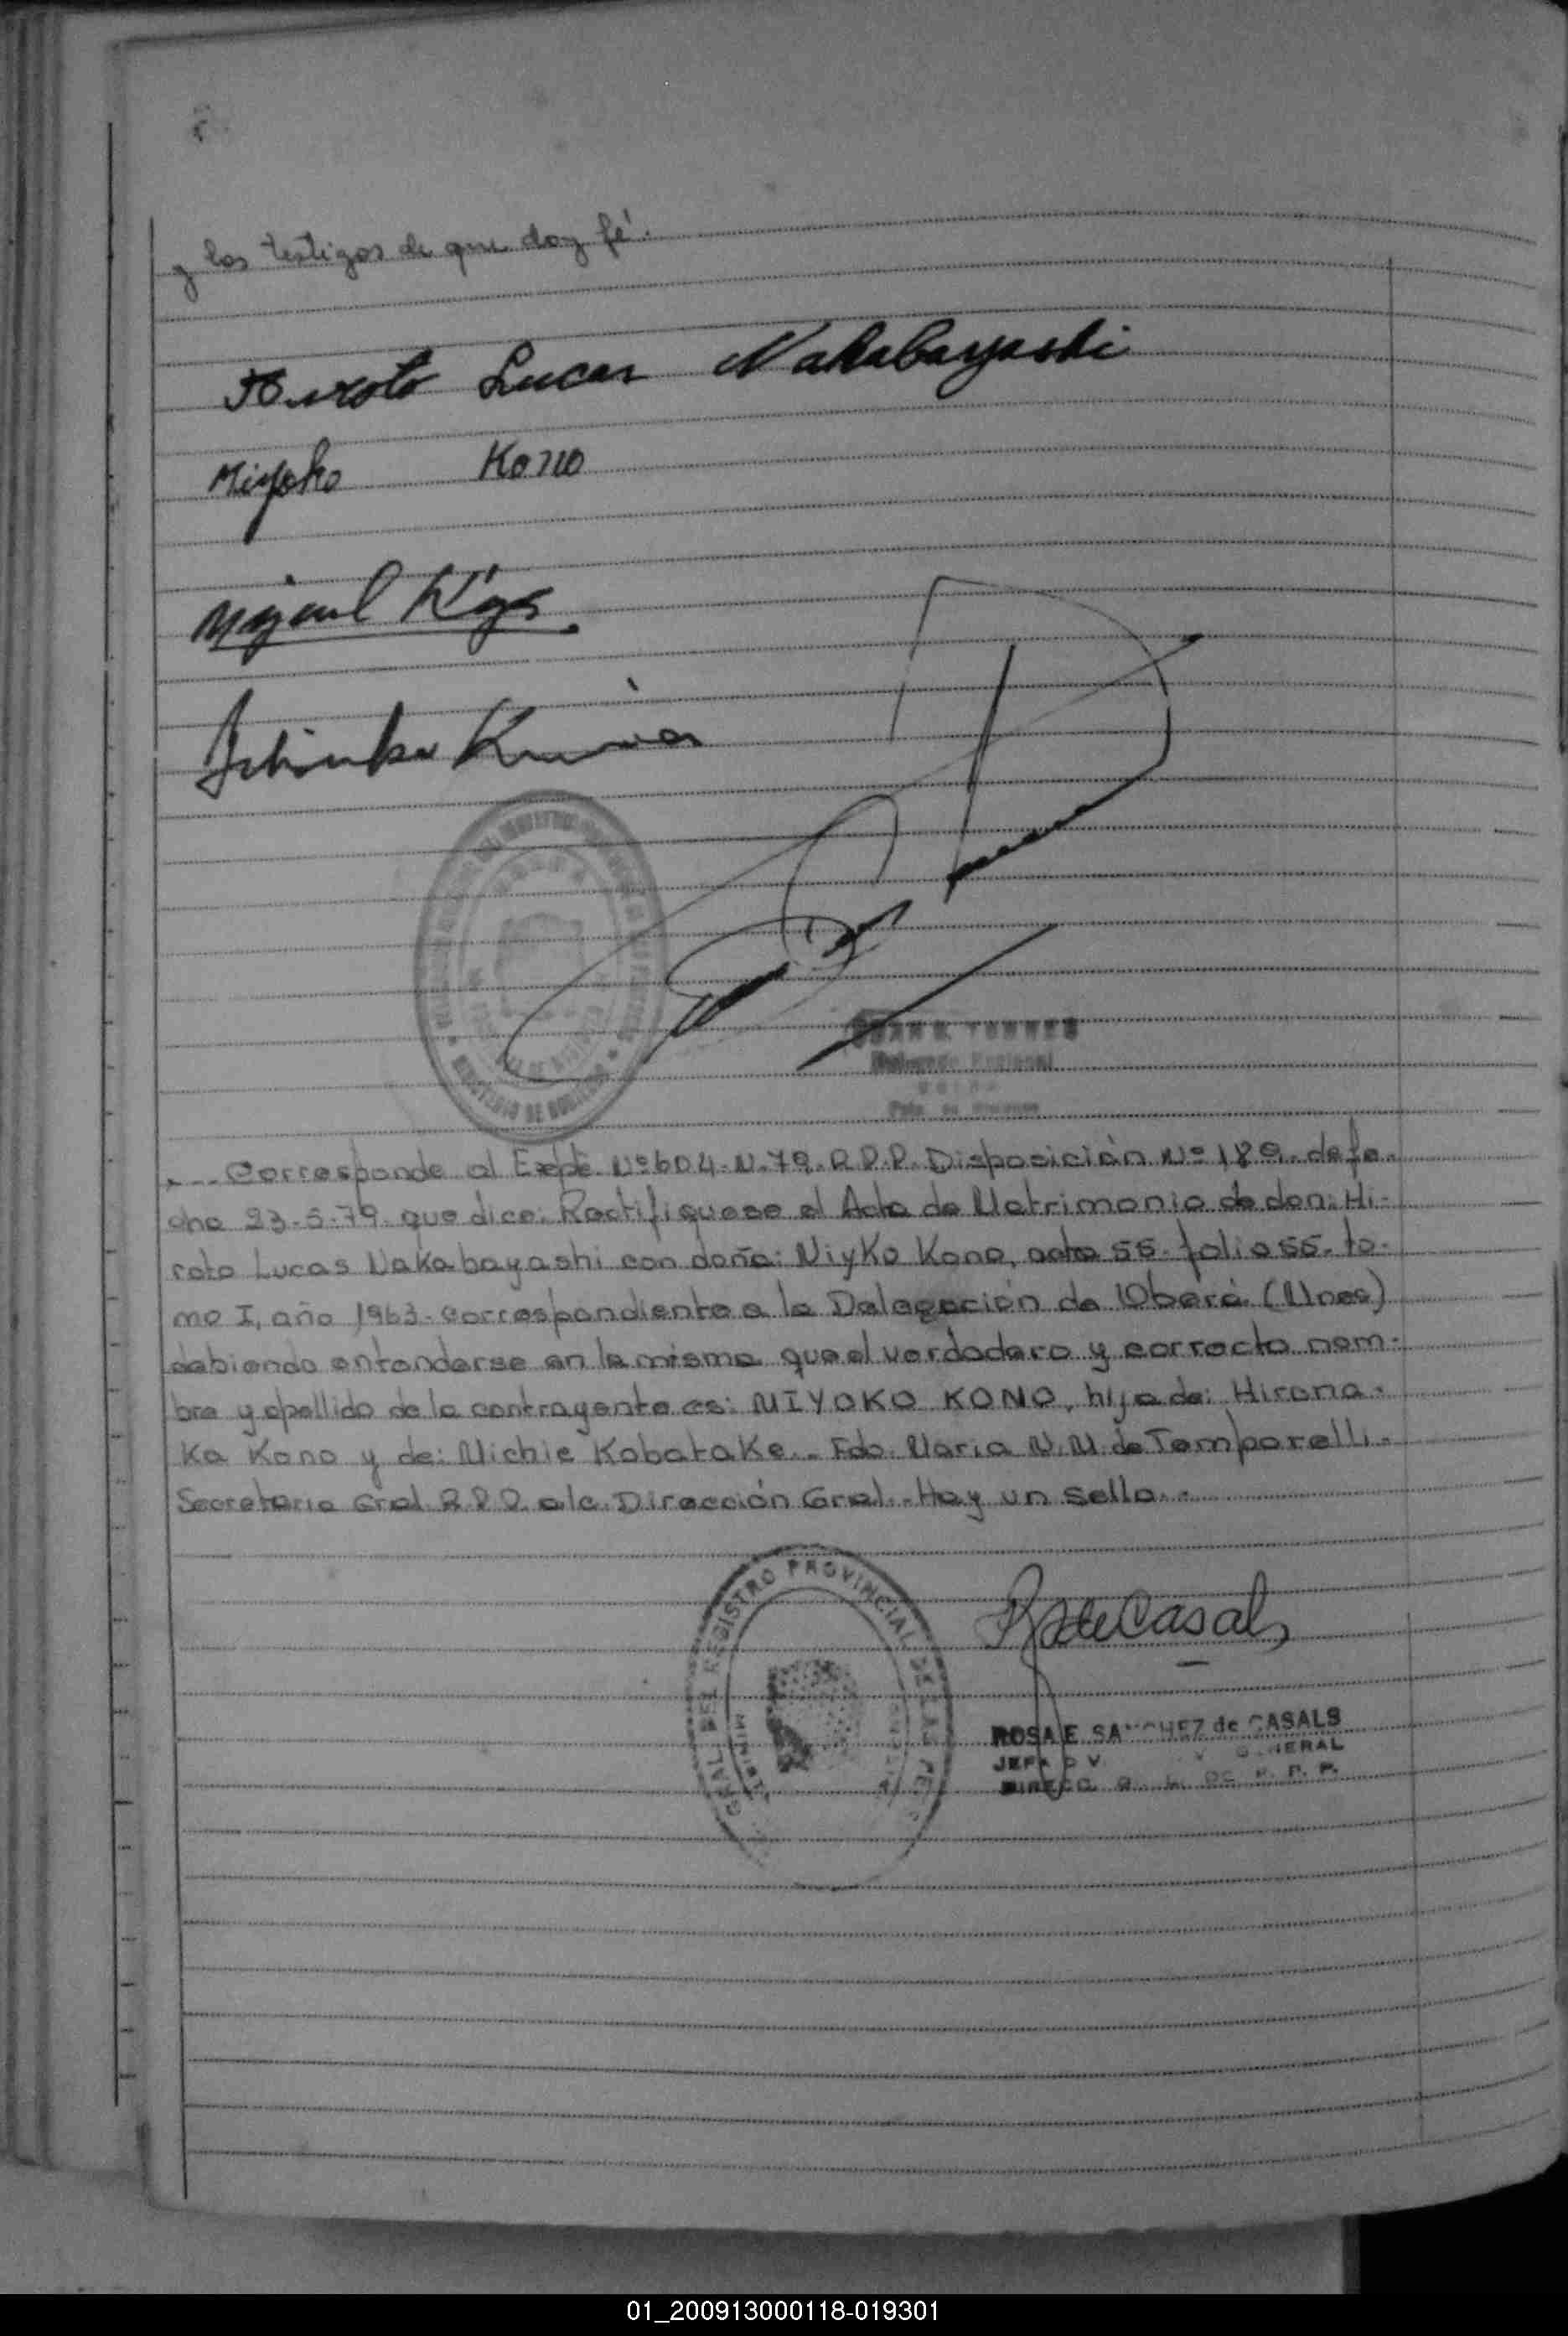 y los testigos de que doy fé.
Hiroto Lucas Nakabayashi
Miyoko Kono
MINISTERIO DE GOBIERNO
JUAN R. TORRES
Delegado Regional
Corresponde al Expte Nº 604-N-79. R.P.P. Disposición Nº 189. de fe-
cha 23-5-79. que dice: Rectifiquese el Acta de Matrimonio de don: Hi-
roto Lucas Nakabayashi con doña: Miyko Kono, acta 55- folio 55- to-
mo I, año 1963- correspondiente a la Delegación de Oberá (Mnes)
debiendo entenderse en la misma que el verdadero y correcto nom-
bre y apellido de la contrayente es: MIYOKO KONO, hija de: Hirono-
Ka Kono y de: Michie Kobatake.- Fdo. Maria N. M. de Temporelli-
Secretaria Gral R.P.P. a/c. Dirección Gral.- Hay un sello.-
GRAL DEL REGISTRO PROVINCIAL DE LAS PE
R S de Casals
ROSA E. SANCHEZ de CASALS
JEFA GENERAL
R. P. P.
01_200913000118-019301